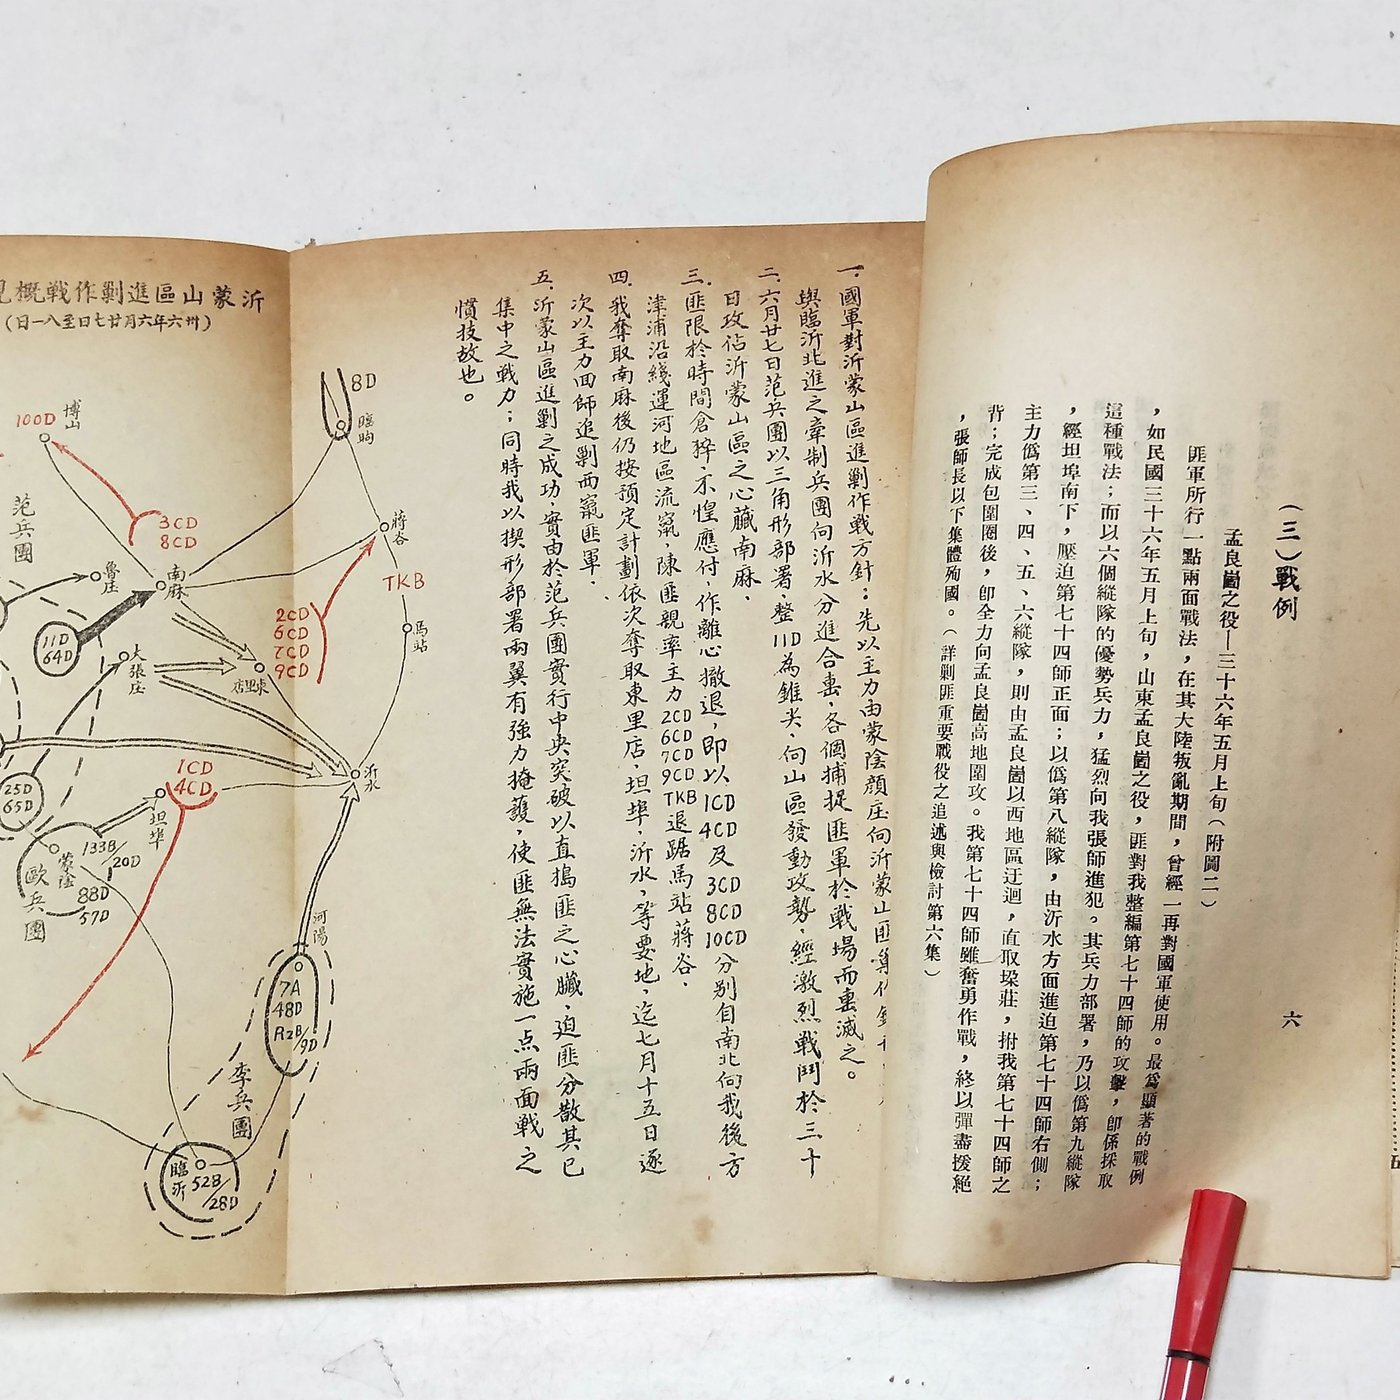 (三)戰例
孟良崮之役—三十六年五月上旬(附圖二)
匪軍所行一點兩面戰法,在其大陸叛亂期間,曾經一再對國軍使用。最爲顯著的戰例
,如民國三十六年五月上旬,山東孟良崮之役,匪對我整編第七十四師的攻擊,卽係採取
這種戰法;而以六個縱隊的優勢兵力,猛烈向我張師進犯。其兵力部署,乃以僞第九縱隊
,經坦埠南下,壓迫第七十四師正面;以僞第八縱隊,由沂水方面進迫第七十四師右側;
主力僞第三、四、五、六縱隊,則由孟良崮以西地區迂迴,直取垛莊,拊我第七十四師之
背;完成包圍圈後,卽全力向孟良崮高地圍攻。我第七十四師雖奮勇作戰,終以彈盡援絕
,張師長以下集體殉國。(詳剿匪重要戰役之追述與檢討第六集)
六
五
一.國軍對沂蒙山區進剿作戰方針:先以主力由蒙陰顏庄向沂蒙山匪巢
與臨沂北進之牽制兵團向沂水分進合擊,各個捕捉匪軍於戰場而擊滅之。
二.六月廿七日范兵團以三角形部署,整11D為錐尖,向山區發動攻勢,經激烈戰鬥於三十
日攻佔沂蒙山區之心臟南麻.
三.匪限於時間倉猝,不惶應付,作離心撤退,即以1CD 4CD及3CD 8CD 10CD分別自南北向我後方
津浦沿綫運河地區流竄,陳匪親率主力2CD 6CD 7CD 9CD TKB退踞馬站蔣谷.
四.我奪取南麻後仍按預定計劃依次奪取東里店,坦埠,沂水,等要地,迄七月十五日遂
次以主力回師追剿西竄匪軍.
五.沂蒙山區進剿之成功實由於范兵團實行中央突破以直搗匪之心臟,迫匪分散其已
集中之戰力;同時我以楔形部署兩翼有強力掩護,使匪無法實施一点兩面戰之
慣技故也。
沂蒙山區進剿作戰概見
(卅六年六月廿七日至八一日)
8D
臨朐
博山
100D
3CD
8CD
范兵團
魯庄
南麻
蔣谷
TKB
馬站
11D
64D
2CD
6CD
7CD
9CD
大張庄
東里店
沂水
1CD
4CD
坦埠
25D
65D
133B/20D
蒙陰
88D
57D
歐兵團
河陽
7A
48D
R2B/9D
李兵團
臨沂
52B/28D